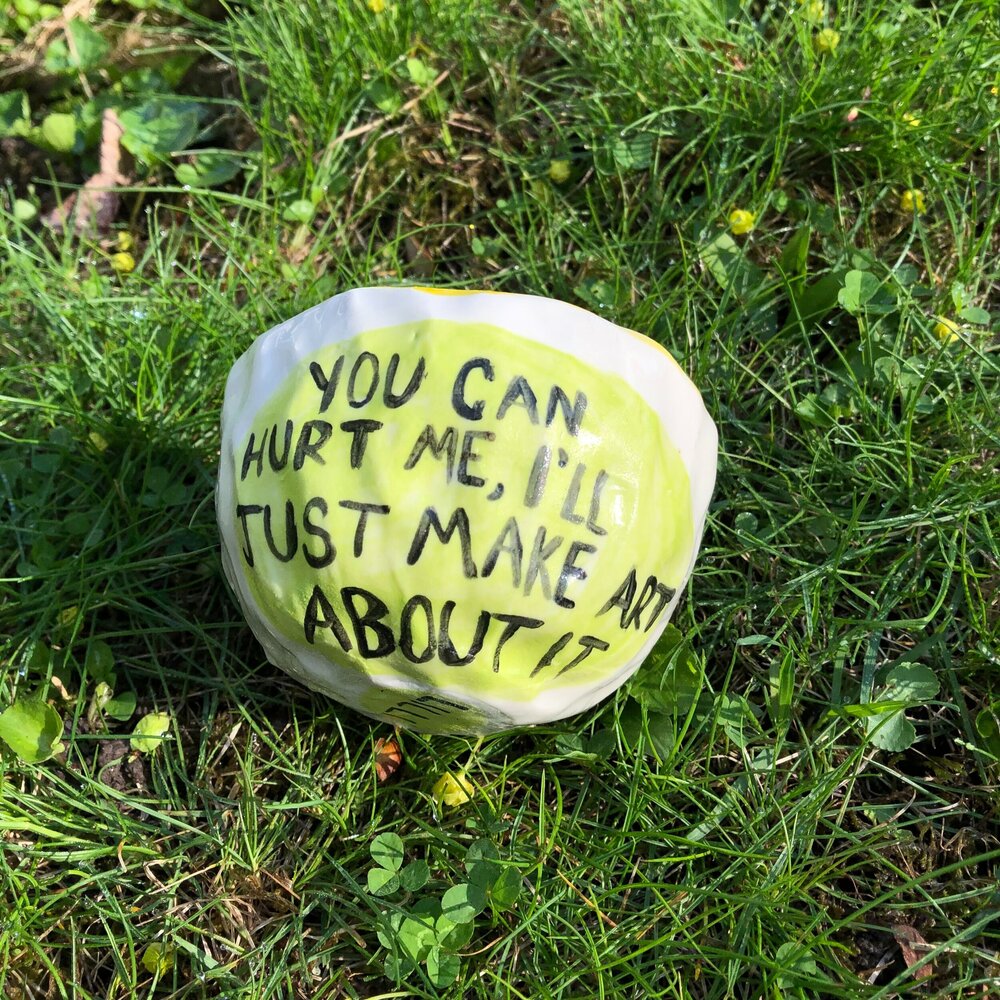 YOU CAN
HURT ME, I'LL
JUST MAKE ART
ABOUT IT